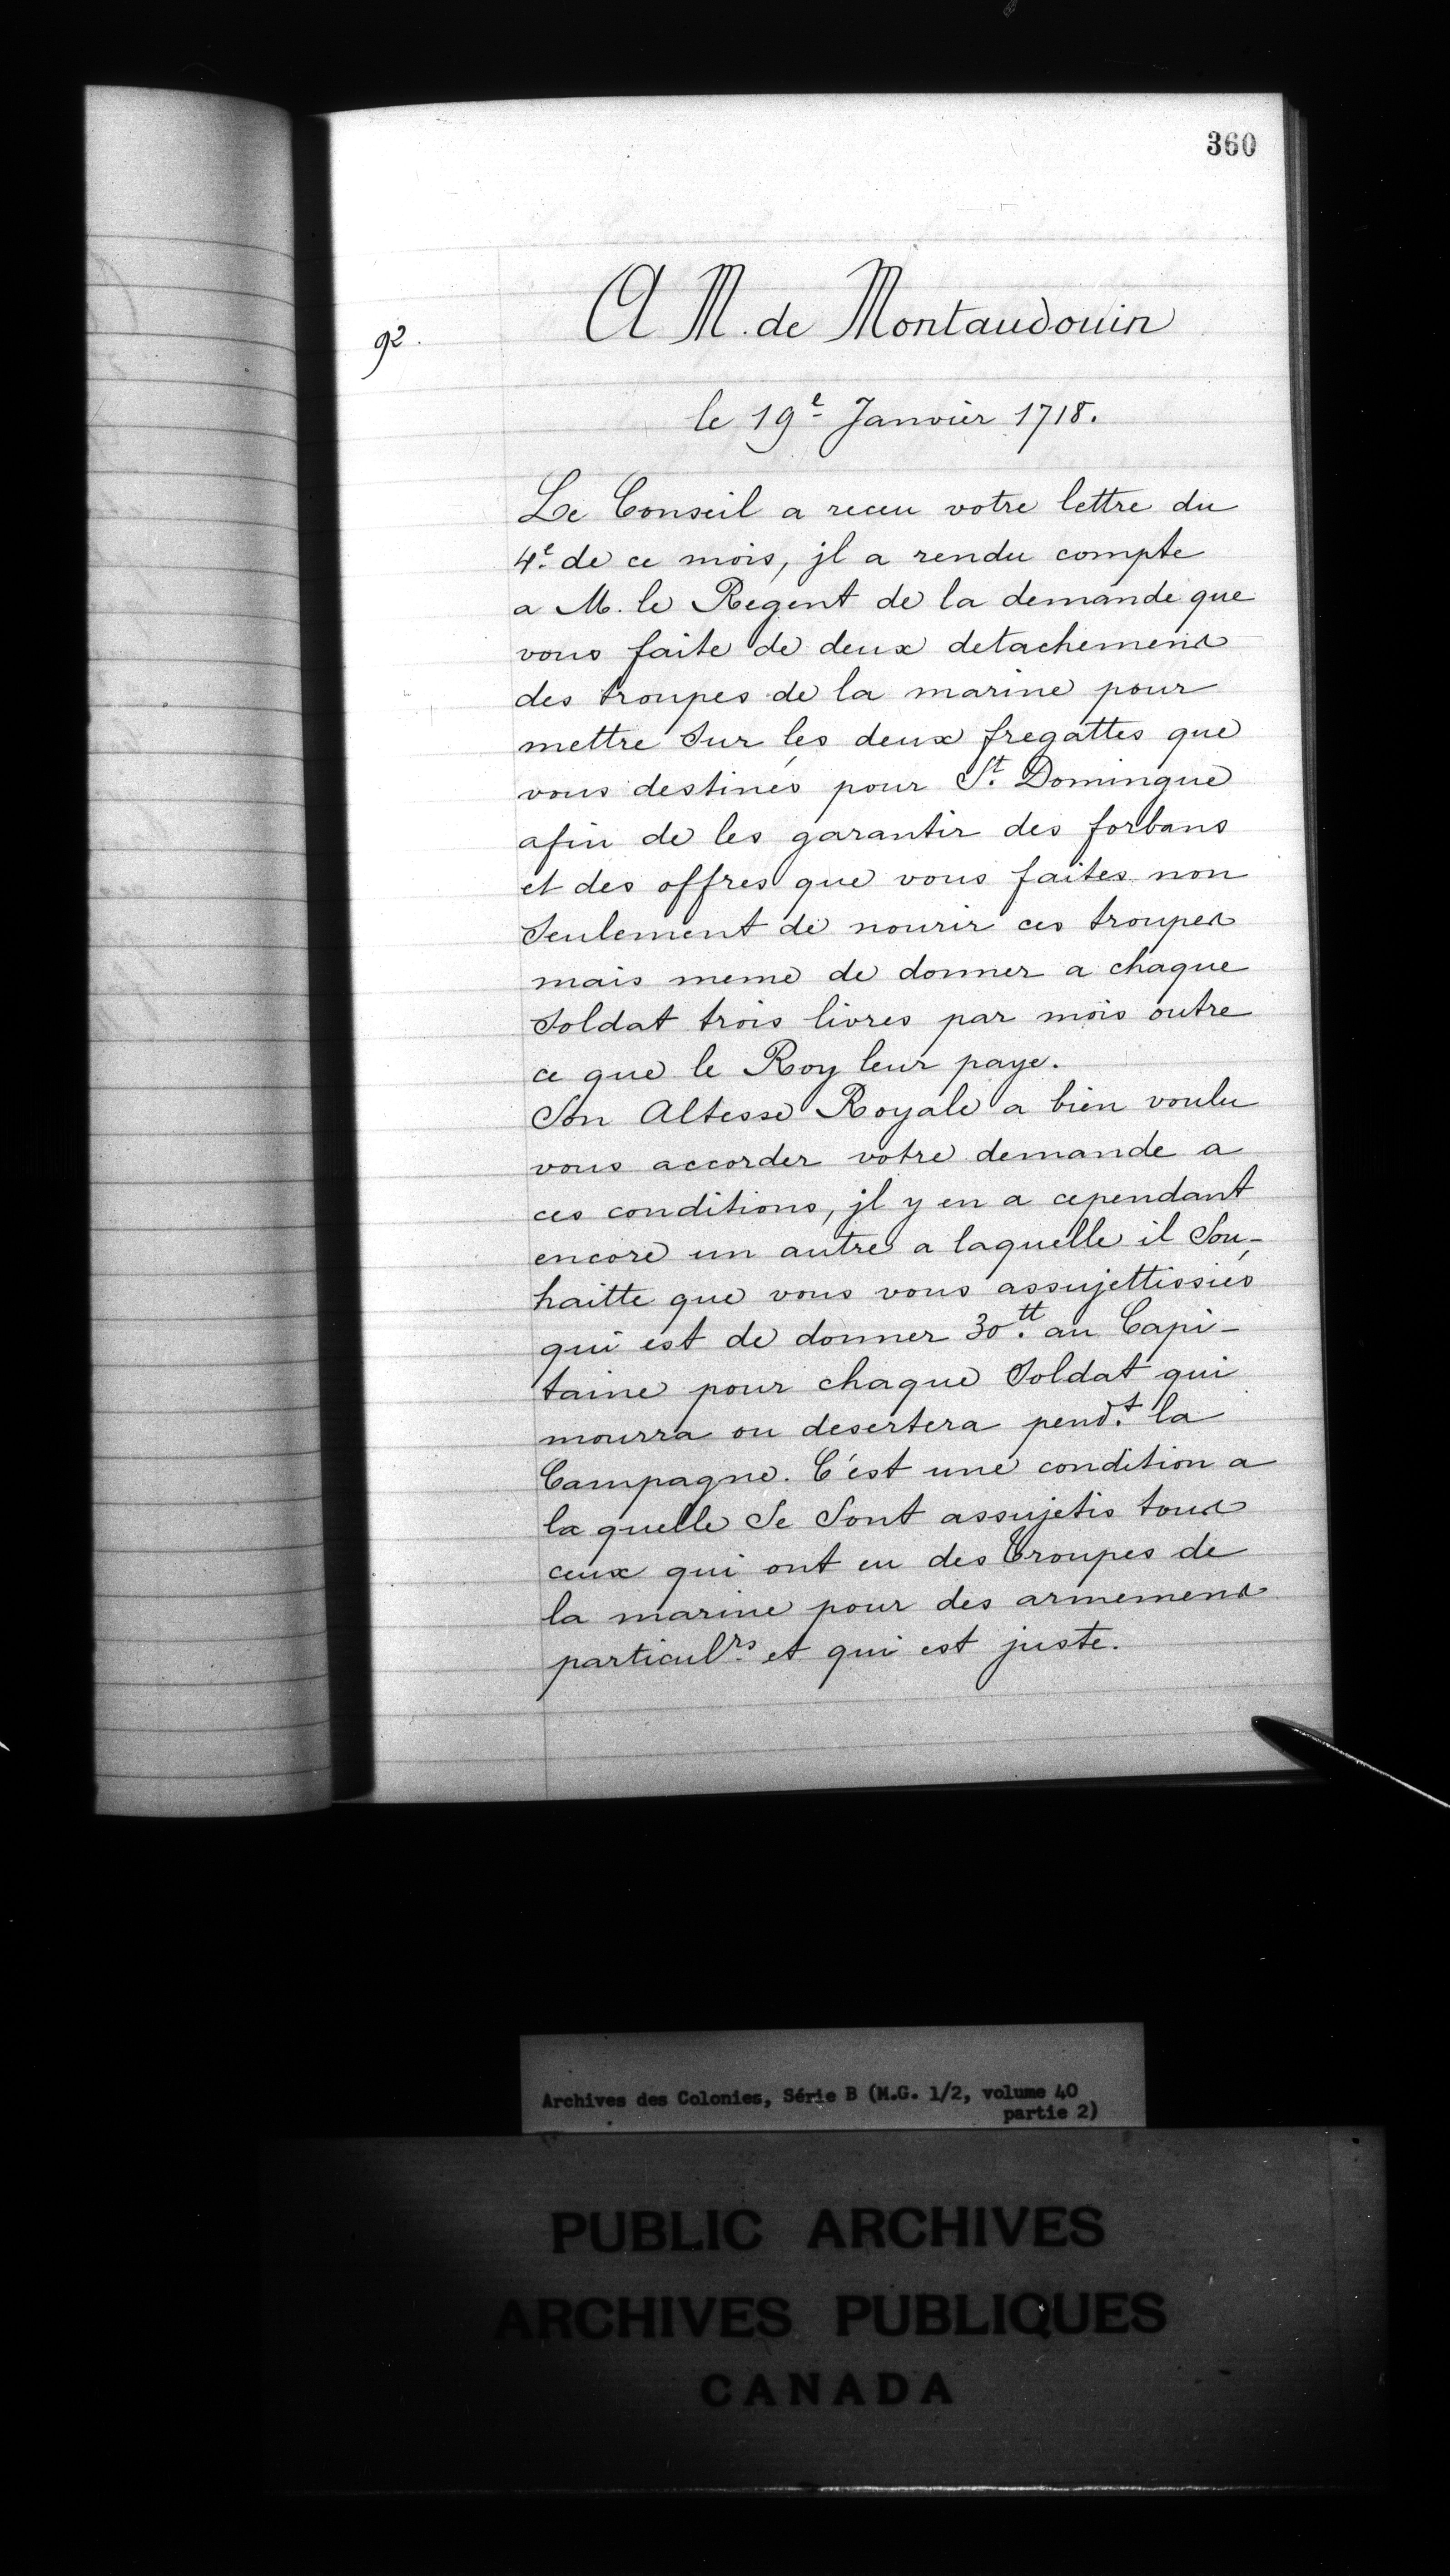 360
92.
A M. de Montaudouin
le 19e Janvier 1718.
Le Conseil a receu votre lettre du
4e. de ce mois, jl a rendu compte
a M. le Regent de la demande que
vous faite de deux detachemens
des troupes de la marine pour
mettre sur les deux fregattes que
vous destinés pour St. Domingue
afin de les garantir des forbans
et des offres que vous faites non
seulement de nourir ces troupes
mais meme de donner a chaque
soldat trois livres par mois outre
ce que le Roy leur paye.
Son Altesse Royale a bien voulu
vous accorder votre demande a
ces conditions, jl y en a cependant
encore un autre a laquelle il sou-
haitte que vous vous assujettissiés
qui est de donner 30.tt au Capi-
taine pour chaque soldat qui
mourra ou desertera pend.t la
Campagne. C'est une condition a
la quelle se sont assujetis tous
ceux qui ont eu des troupes de
la marine pour des armemens
particulrs et qui est juste.
Archives des Colonies, Série B (M.G. 1/2, volume 40
partie 2)
PUBLIC ARCHIVES
ARCHIVES PUBLIQUES
CANADA